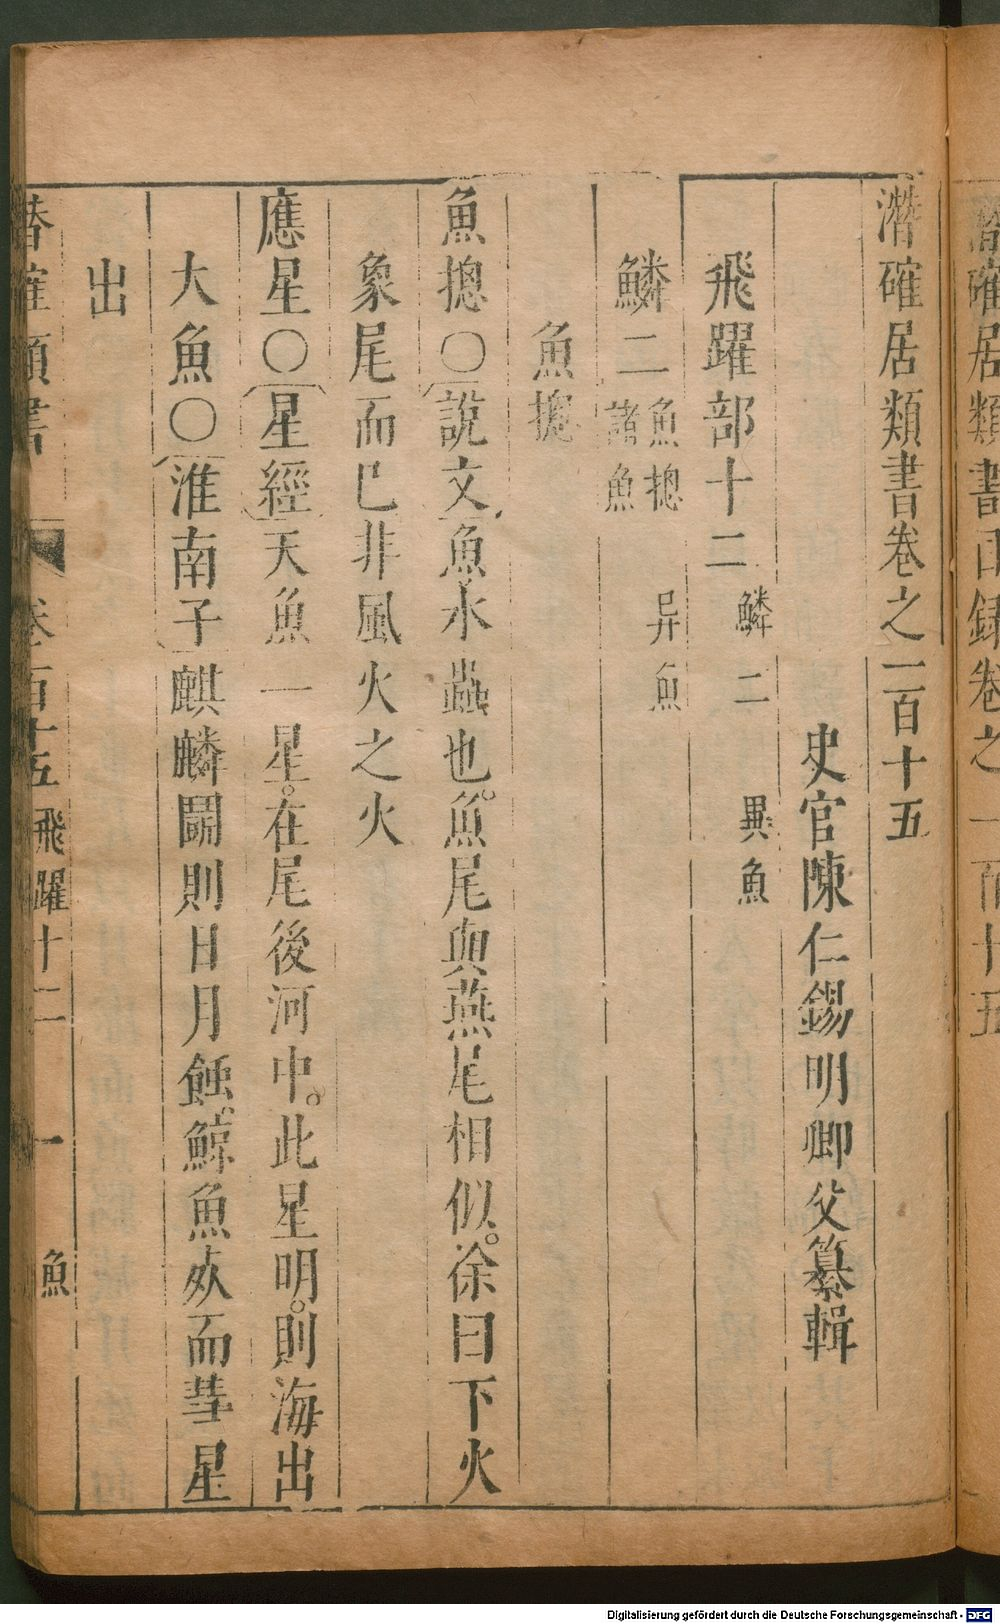 潛確居類書目録卷之一百十五
潛確居類書卷之一百十五
史官陳仁錫明卿父纂輯
飛躍部十二 鱗二 異魚
鱗二 魚摠 諸魚 异魚
魚摠
魚摠○說文魚水蟲也魚尾與燕尾相似徐曰下火
象尾而已非風火之火
應星○星經天魚一星在尾後河中此星明則海出
大魚○淮南子麒麟鬭則日月蝕鯨魚死而彗星
出
潛確類書 卷一百十五 飛躍十二 一 魚
Digitalisierung gefördert durch die Deutsche Forschungsgemeinschaft - DFG